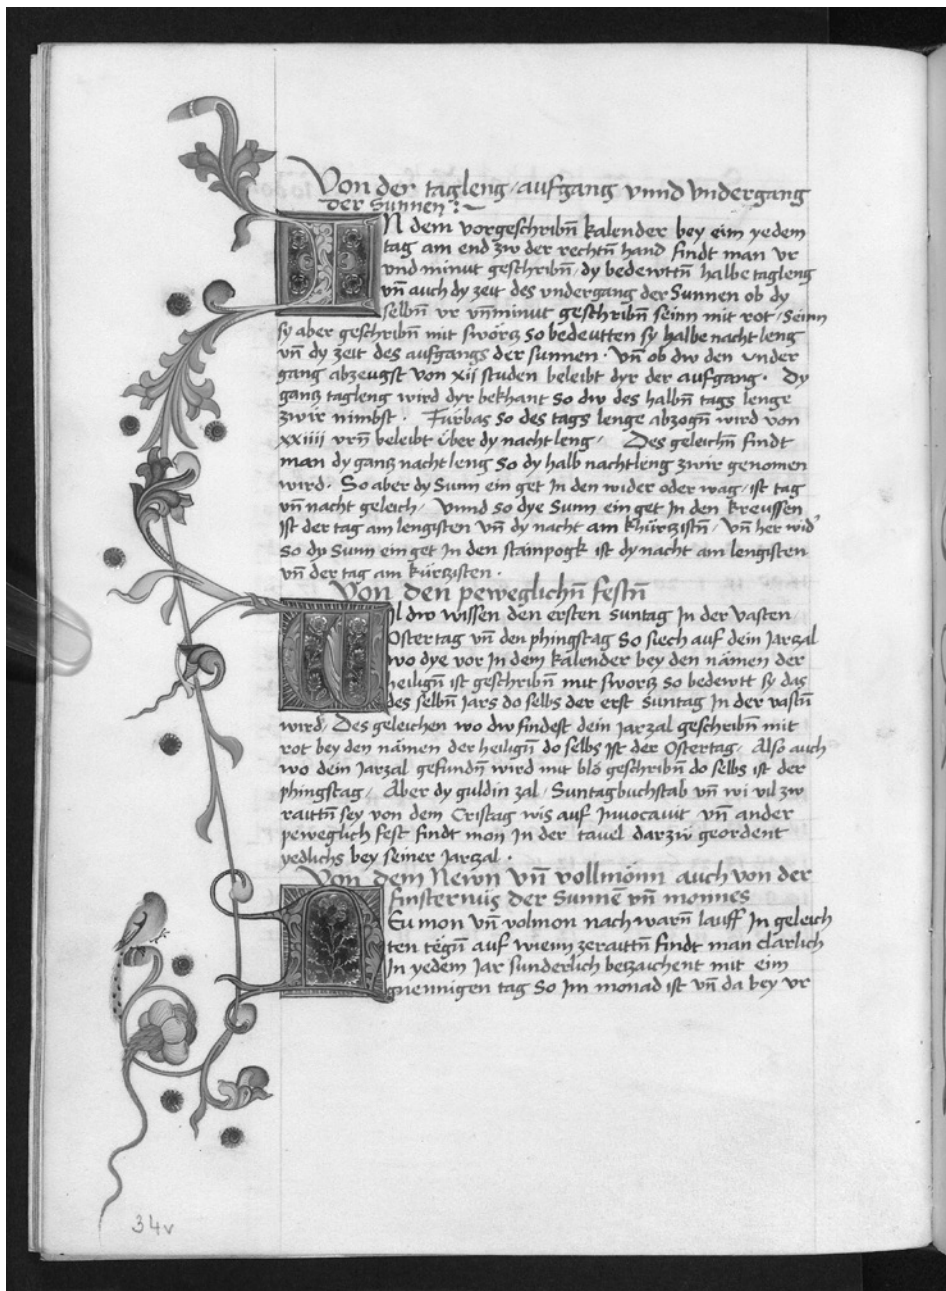 Von der tagleng / aufgang vnnd vndergang
der Sunnen :~
IN dem vorgeschribn̄ kalender bey eim yedem
tag am end zw der rechtn̄ hand findt man vr
vnd minut geschribn̄ / dy bedewttn̄ halbe tagleng
vn̄ auch dy zeit des vndergang der Sunnen ob dy
selbn̄ vr vn̄ minut geschribn̄ seinn mit rot / Seinn
sy aber geschribn̄ mit swörtz so bedeutten sy halbe nacht leng
vn̄ dy zeit des aufgangs der sunnen · Vn̄ ob dw den vnder
gang abzeugst von xij studen beleibt dyr der aufgang · Dy
gantz tagleng wird dyr bekhant so dw des halbn̄ tags lenge
zwir nimbst · Fürbas so des tags lenge abzogn̄ wird von
xxiiij vrn̄ beleibt über dy nacht leng / Des geleichn̄ findt
man dy gantz nacht leng so dy halb nachtleng zwir genomen
wird · So aber dy Sunn ein get In den wider oder wag / ist tag
vn̄ nacht geleich / Vnnd so dye Sunn ein get In den kreussen
Ist der tag am lengisten vn̄ dy nacht am khürtzistn̄ / vn̄ her wid'
so dy Sunn ein get In den stainpogk ist dy nacht am lengisten
vn̄ der tag am kürtzisten ·
Von den peweglichn̄ festn̄
Wil dw wissen den ersten suntag In der vasten
Ostertag vn̄ den phingstag So siech auf dein Jarzal
wo dye vor In dem kalender bey den nämen der
heilign̄ ist geschribn̄ mit swortz so bedewtt sy das
des selbn̄ Jars do selbs der erst suntag In der vastn̄
wird / Des geleichen wo dw findest dein Jarzal geschribn̄ mit
rot bey den nämen der heilign̄ do selbs Ist der Ostertag / Also auch
wo dein Jarzal gefundn̄ wird mit blo geschribn̄ do selbs ist der
phingstag / Aber dy guldin zal / Suntagbuchstab vn̄ wi vil zw
rauttn̄ sey von dem Cristag wis auf Inuocauit vn̄ ander
peweglich fest findt mon In der tauel darzw geordent
yedlichs bey seiner Jartzal ·
Von dem Newn vn̄ vollmonn auch von der
finsternüs der Sunnē vn̄ monnes
NEu mon vn̄ volmon nach warn̄ lauff In geleich
ten tëgn̄ auf wienn zerauttn̄ findt man clarlich
In yedem Jar sunderlich betzaichent mit eim
gnennigen tag So Im monad ist vn̄ da bey vr
34v